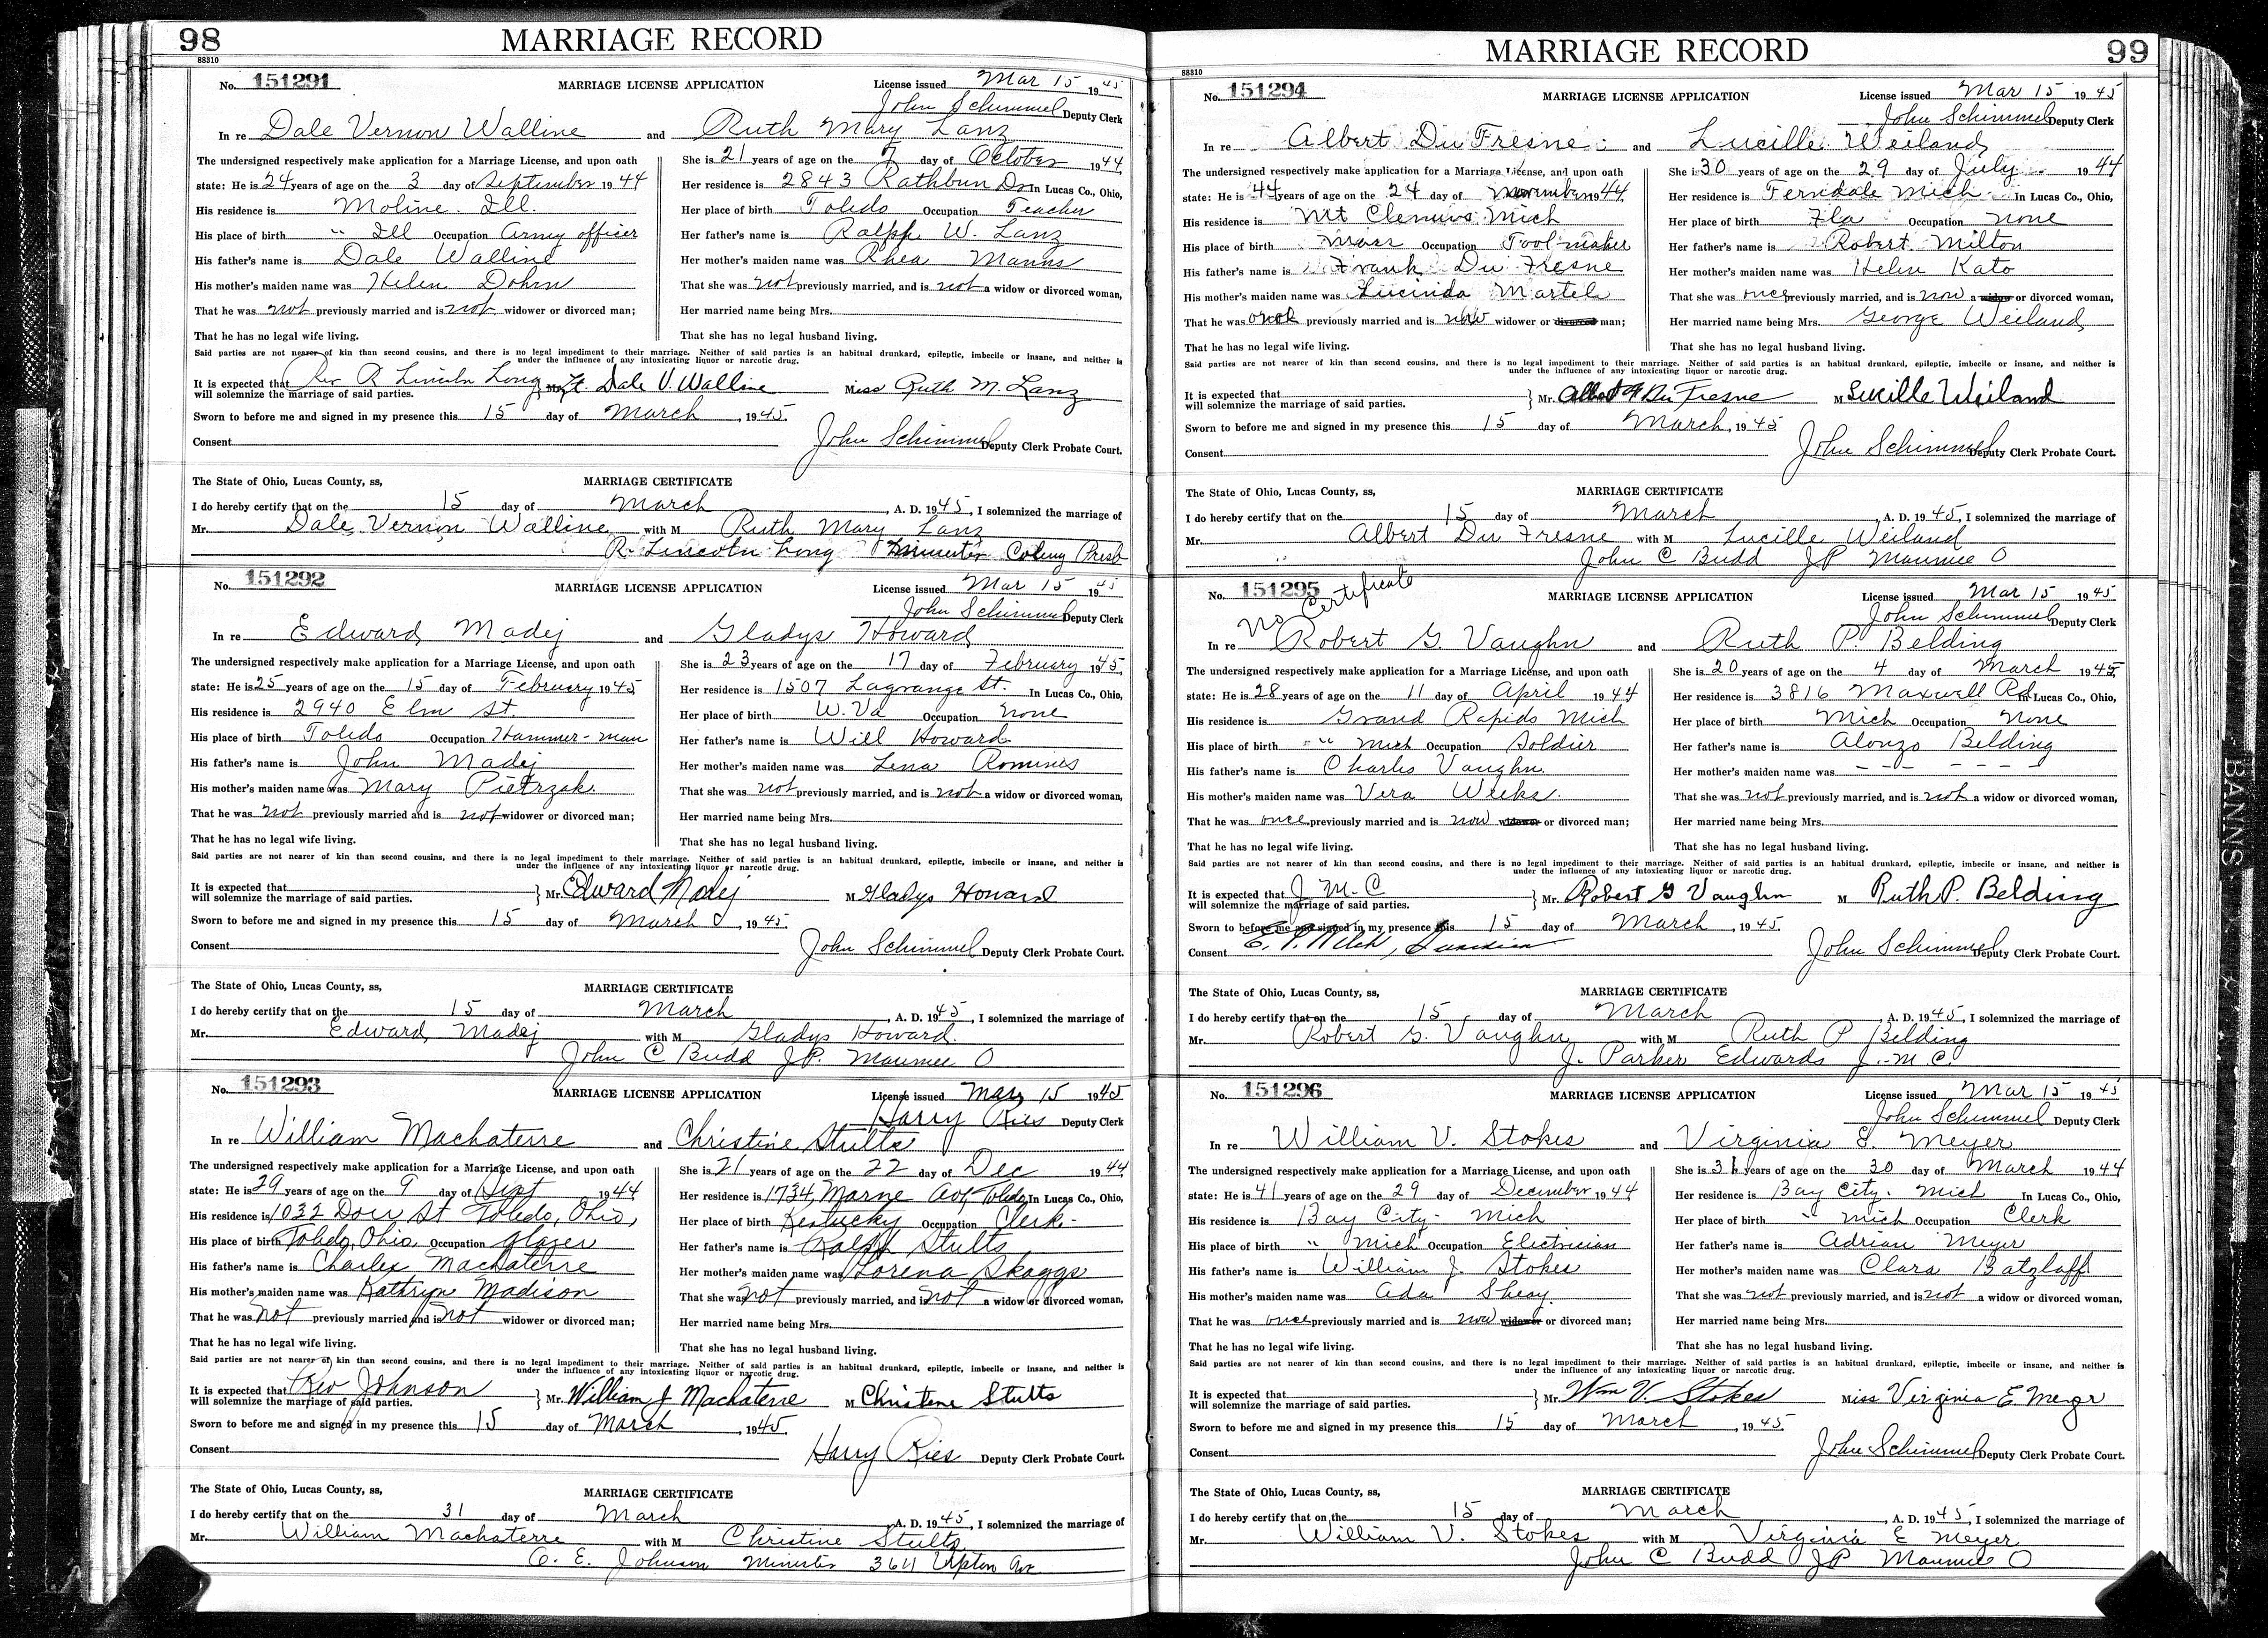 98
MARRIAGE RECORD
88310
No. 151291 MARRIAGE LICENSE APPLICATION License issued Mar 15 1945
John Schimmel Deputy Clerk
In re Dale Vernon Walline and Ruth Mary Lanz
The undersigned respectively make application for a Marriage License, and upon oath
state: He is 24 years of age on the 3 day of September 1944
His residence is Moline. Ill.
His place of birth " Ill Occupation Army officer
His father's name is Dale Walline
His mother's maiden name was Helen Dohrn
That he was not previously married and is not widower or divorced man;
That he has no legal wife living.
She is 21 years of age on the 7 day of October 1944
Her residence is 2843 Rathbun Dr In Lucas Co., Ohio,
Her place of birth Toledo Occupation Teacher
Her father's name is Ralph W. Lanz
Her mother's maiden name was Rhea Manns
That she was not previously married, and is not a widow or divorced woman,
Her married name being Mrs.
That she has no legal husband living.
Said parties are not nearer of kin than second cousins, and there is no legal impediment to their marriage. Neither of said parties is an habitual drunkard, epileptic, imbecile or insane, and neither is
under the influence of any intoxicating liquor or narcotic drug.
It is expected that Rev R Lincoln Long } Mr. Lt. Dale V. Walline Miss Ruth M. Lanz
will solemnize the marriage of said parties.
Sworn to before me and signed in my presence this 15 day of March, 1945.
Consent John Schimmel Deputy Clerk Probate Court.
The State of Ohio, Lucas County, ss, MARRIAGE CERTIFICATE
I do hereby certify that on the 15 day of March, A. D. 1945, I solemnized the marriage of
Mr. Dale Vernon Walline with M Ruth Mary Lanz
R. Lincoln Long Minister Coleny Presb
No. 151292 MARRIAGE LICENSE APPLICATION License issued Mar 15 1945
John Schimmel Deputy Clerk
In re Edward Madej and Gladys Howard
The undersigned respectively make application for a Marriage License, and upon oath
state: He is 25 years of age on the 15 day of February 1945
His residence is 2940 Elm St.
His place of birth Toledo Occupation Hammer-man
His father's name is John Madej
His mother's maiden name was Mary Pietrzak
That he was not previously married and is not widower or divorced man;
That he has no legal wife living.
She is 23 years of age on the 17 day of February 1945,
Her residence is 1507 Lagrange St. In Lucas Co., Ohio,
Her place of birth W. Va Occupation none
Her father's name is Will Howard
Her mother's maiden name was Lena Romines
That she was not previously married, and is not a widow or divorced woman,
Her married name being Mrs.
That she has no legal husband living.
Said parties are not nearer of kin than second cousins, and there is no legal impediment to their marriage. Neither of said parties is an habitual drunkard, epileptic, imbecile or insane, and neither is
under the influence of any intoxicating liquor or narcotic drug.
It is expected that } Mr. Edward Madej M Gladys Howard
will solemnize the marriage of said parties.
Sworn to before me and signed in my presence this 15 day of March, 1945.
Consent John Schimmel Deputy Clerk Probate Court.
The State of Ohio, Lucas County, ss, MARRIAGE CERTIFICATE
I do hereby certify that on the 15 day of March, A. D. 1945, I solemnized the marriage of
Mr. Edward Madej with M Gladys Howard.
John C Budd JP. Maumee O
No. 151293 MARRIAGE LICENSE APPLICATION License issued Mar 15 1945
Harry Ries Deputy Clerk
In re William Machaterre and Christine Stults
The undersigned respectively make application for a Marriage License, and upon oath
state: He is 29 years of age on the 9 day of Sept 1944
His residence is 1032 Dorr St Toledo, Ohio,
His place of birth Toledo, Ohio Occupation Glazer
His father's name is Charles Machaterre
His mother's maiden name was Kathryn Madison
That he was not previously married and is not widower or divorced man;
That he has no legal wife living.
She is 21 years of age on the 22 day of Dec 1944
Her residence is 1734 Marne Ave, Toledo In Lucas Co., Ohio,
Her place of birth Kentucky Occupation Clerk-
Her father's name is Ralph Stults
Her mother's maiden name was Lorena Skaggs
That she was not previously married, and is not a widow or divorced woman,
Her married name being Mrs.
That she has no legal husband living.
Said parties are not nearer of kin than second cousins, and there is no legal impediment to their marriage. Neither of said parties is an habitual drunkard, epileptic, imbecile or insane, and neither is
under the influence of any intoxicating liquor or narcotic drug.
It is expected that Rev Johnson } Mr. William J Machaterre M Christene Stults
will solemnize the marriage of said parties.
Sworn to before me and signed in my presence this 15 day of March, 1945.
Consent Harry Ries Deputy Clerk Probate Court.
The State of Ohio, Lucas County, ss, MARRIAGE CERTIFICATE
I do hereby certify that on the 31 day of March A. D. 1945, I solemnized the marriage of
Mr. William Machaterre with M Christine Stults
O. E. Johnson Minister 3611 Upton Av
MARRIAGE RECORD
99
88310
No. 151294 MARRIAGE LICENSE APPLICATION License issued Mar 15 1945
John Schimmel Deputy Clerk
In re Albert Du Fresne and Lucille Weiland
The undersigned respectively make application for a Marriage License, and upon oath
state: He is 44 years of age on the 24 day of November 1944
His residence is Mt Clemens Mich
His place of birth Occupation Tool-maker
His father's name is Frank Du Fresne
His mother's maiden name was Lucinda Martele
That he was once previously married and is now widower or divorced man;
That he has no legal wife living.
She is 30 years of age on the 29 day of July 1944
Her residence is Ferndale Mich In Lucas Co., Ohio,
Her place of birth Fla Occupation none
Her father's name is Robert Milton
Her mother's maiden name was Helen Kato
That she was once previously married, and is now a widow or divorced woman,
Her married name being Mrs. George Weiland
That she has no legal husband living.
Said parties are not nearer of kin than second cousins, and there is no legal impediment to their marriage. Neither of said parties is an habitual drunkard, epileptic, imbecile or insane, and neither is
under the influence of any intoxicating liquor or narcotic drug.
It is expected that } Mr. Albert Du Fresne M Lucille Weiland
will solemnize the marriage of said parties.
Sworn to before me and signed in my presence this 15 day of March, 1945
Consent John Schimmel Deputy Clerk Probate Court.
The State of Ohio, Lucas County, ss, MARRIAGE CERTIFICATE
I do hereby certify that on the 15 day of March A. D. 1945, I solemnized the marriage of
Mr. Albert Du Fresne with M Lucille Weiland
John C Budd JP Maumee O
No. 151295 MARRIAGE LICENSE APPLICATION License issued Mar 15 1945
No Certificate
John Schimmel Deputy Clerk
In re Robert G. Vaughn and Ruth P. Belding
The undersigned respectively make application for a Marriage License, and upon oath
state: He is 28 years of age on the 11 day of April 1944
His residence is Grand Rapids Mich
His place of birth " " Mich Occupation Soldier
His father's name is Charles Vaughn
His mother's maiden name was Vera Weeks.
That he was once previously married and is now widower or divorced man;
That he has no legal wife living.
She is 20 years of age on the 4 day of March 1945
Her residence is 3816 Maxwell Rd In Lucas Co., Ohio,
Her place of birth Mich Occupation None
Her father's name is Alonzo Belding
Her mother's maiden name was - - - - - - -
That she was not previously married, and is not a widow or divorced woman,
Her married name being Mrs.
That she has no legal husband living.
Said parties are not nearer of kin than second cousins, and there is no legal impediment to their marriage. Neither of said parties is an habitual drunkard, epileptic, imbecile or insane, and neither is
under the influence of any intoxicating liquor or narcotic drug.
It is expected that J M. C } Mr. Robert G Vaughn M Ruth P. Belding
will solemnize the marriage of said parties.
Sworn to before me and signed in my presence this 15 day of March, 1945.
Consent E. P. Welch, Guardian John Schimmel Deputy Clerk Probate Court.
The State of Ohio, Lucas County, ss, MARRIAGE CERTIFICATE
I do hereby certify that on the 15 day of March A. D. 1945, I solemnized the marriage of
Mr. Robert G. Vaughn with M Ruth P Belding
J. Parker Edwards J.-M.C.
No. 151296 MARRIAGE LICENSE APPLICATION License issued Mar 15 1945
John Schimmel Deputy Clerk
In re William V. Stokes and Virginia E. Meyer
The undersigned respectively make application for a Marriage License, and upon oath
state: He is 41 years of age on the 29 day of December 1944
His residence is Bay City- Mich
His place of birth " Mich Occupation Electrician
His father's name is William J. Stokes
His mother's maiden name was Ada Sheay
That he was once previously married and is now widower or divorced man;
That he has no legal wife living.
She is 31 years of age on the 30 day of March 1944
Her residence is Bay City. Mich In Lucas Co., Ohio,
Her place of birth " Mich Occupation Clerk
Her father's name is Adrian Meyer
Her mother's maiden name was Clara Batzlaff
That she was not previously married, and is not a widow or divorced woman,
Her married name being Mrs.
That she has no legal husband living.
Said parties are not nearer of kin than second cousins, and there is no legal impediment to their marriage. Neither of said parties is an habitual drunkard, epileptic, imbecile or insane, and neither is
under the influence of any intoxicating liquor or narcotic drug.
It is expected that } Mr. Wm V. Stokes Miss Virginia E. Meyer
will solemnize the marriage of said parties.
Sworn to before me and signed in my presence this 15 day of March, 1945.
Consent John Schimmel Deputy Clerk Probate Court.
The State of Ohio, Lucas County, ss, MARRIAGE CERTIFICATE
I do hereby certify that on the 15 day of March, A. D. 1945, I solemnized the marriage of
Mr. William V. Stokes with M Virginia E Meyer
John C Budd JP Maumee O
BANNS
109